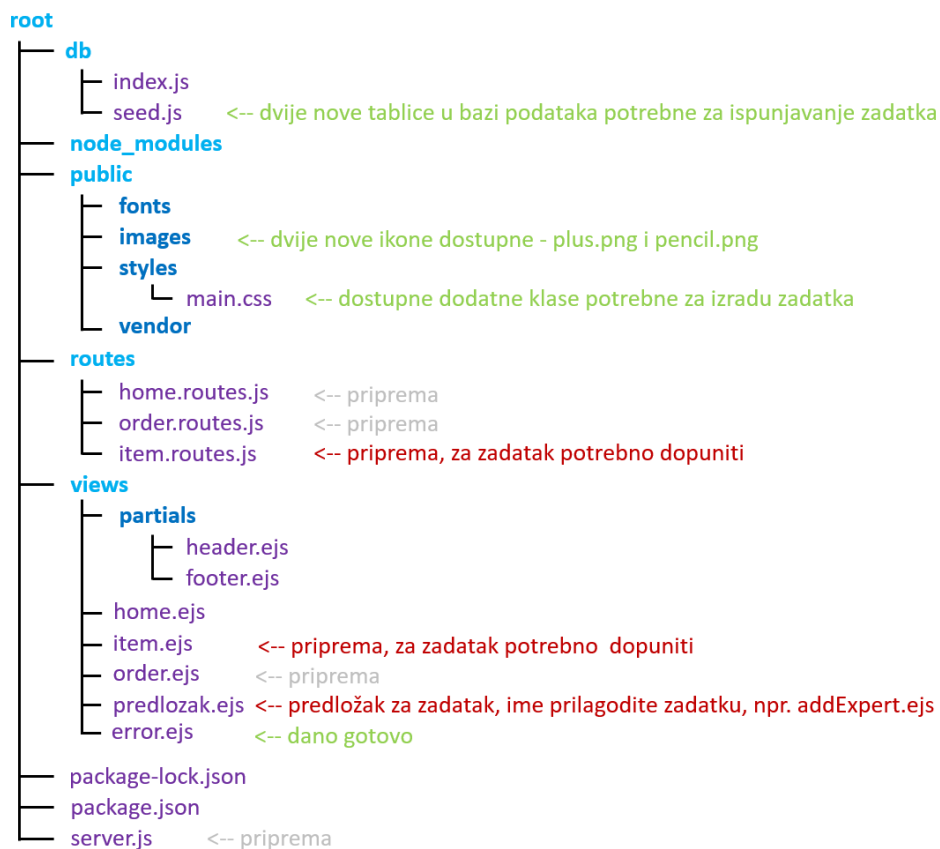 root
db
index.js
seed.js <-- dvije nove tablice u bazi podataka potrebne za ispunjavanje zadatka
node_modules
public
fonts
images <-- dvije nove ikone dostupne - plus.png i pencil.png
styles
main.css <-- dostupne dodatne klase potrebne za izradu zadatka
vendor
routes
home.routes.js <-- priprema
order.routes.js <-- priprema
item.routes.js <-- priprema, za zadatak potrebno dopuniti
views
partials
header.ejs
footer.ejs
home.ejs
item.ejs <-- priprema, za zadatak potrebno dopuniti
order.ejs <-- priprema
predlozak.ejs <-- predložak za zadatak, ime prilagodite zadatku, npr. addExpert.ejs
error.ejs <-- dano gotovo
package-lock.json
package.json
server.js <-- priprema